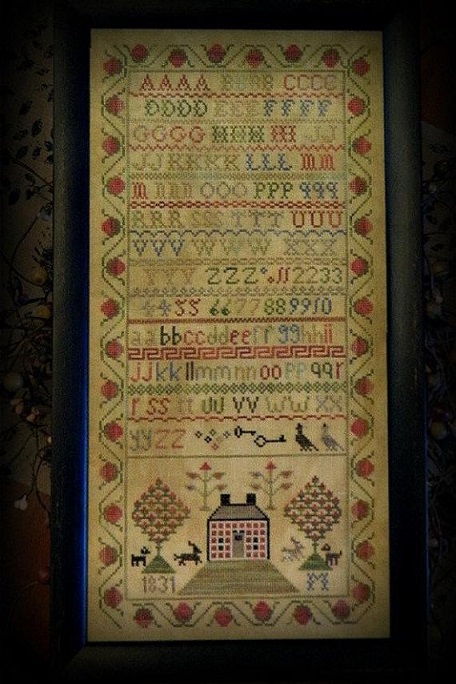 AAAA BBBB CCCC
DDDD EEEE FFFF
GGGG HHH III JJ
JJ KKKK LLL MM
M nnn OOO PPP qqq
RRR SSS TTT UUU
VVV WWW XXX
YYY ZZZ 112233
4455 6677889910
aa bbccddeeff gghhii
jjkkllmmnnooppqqr
rsstt uu vv ww xx
yyzz
1831 M